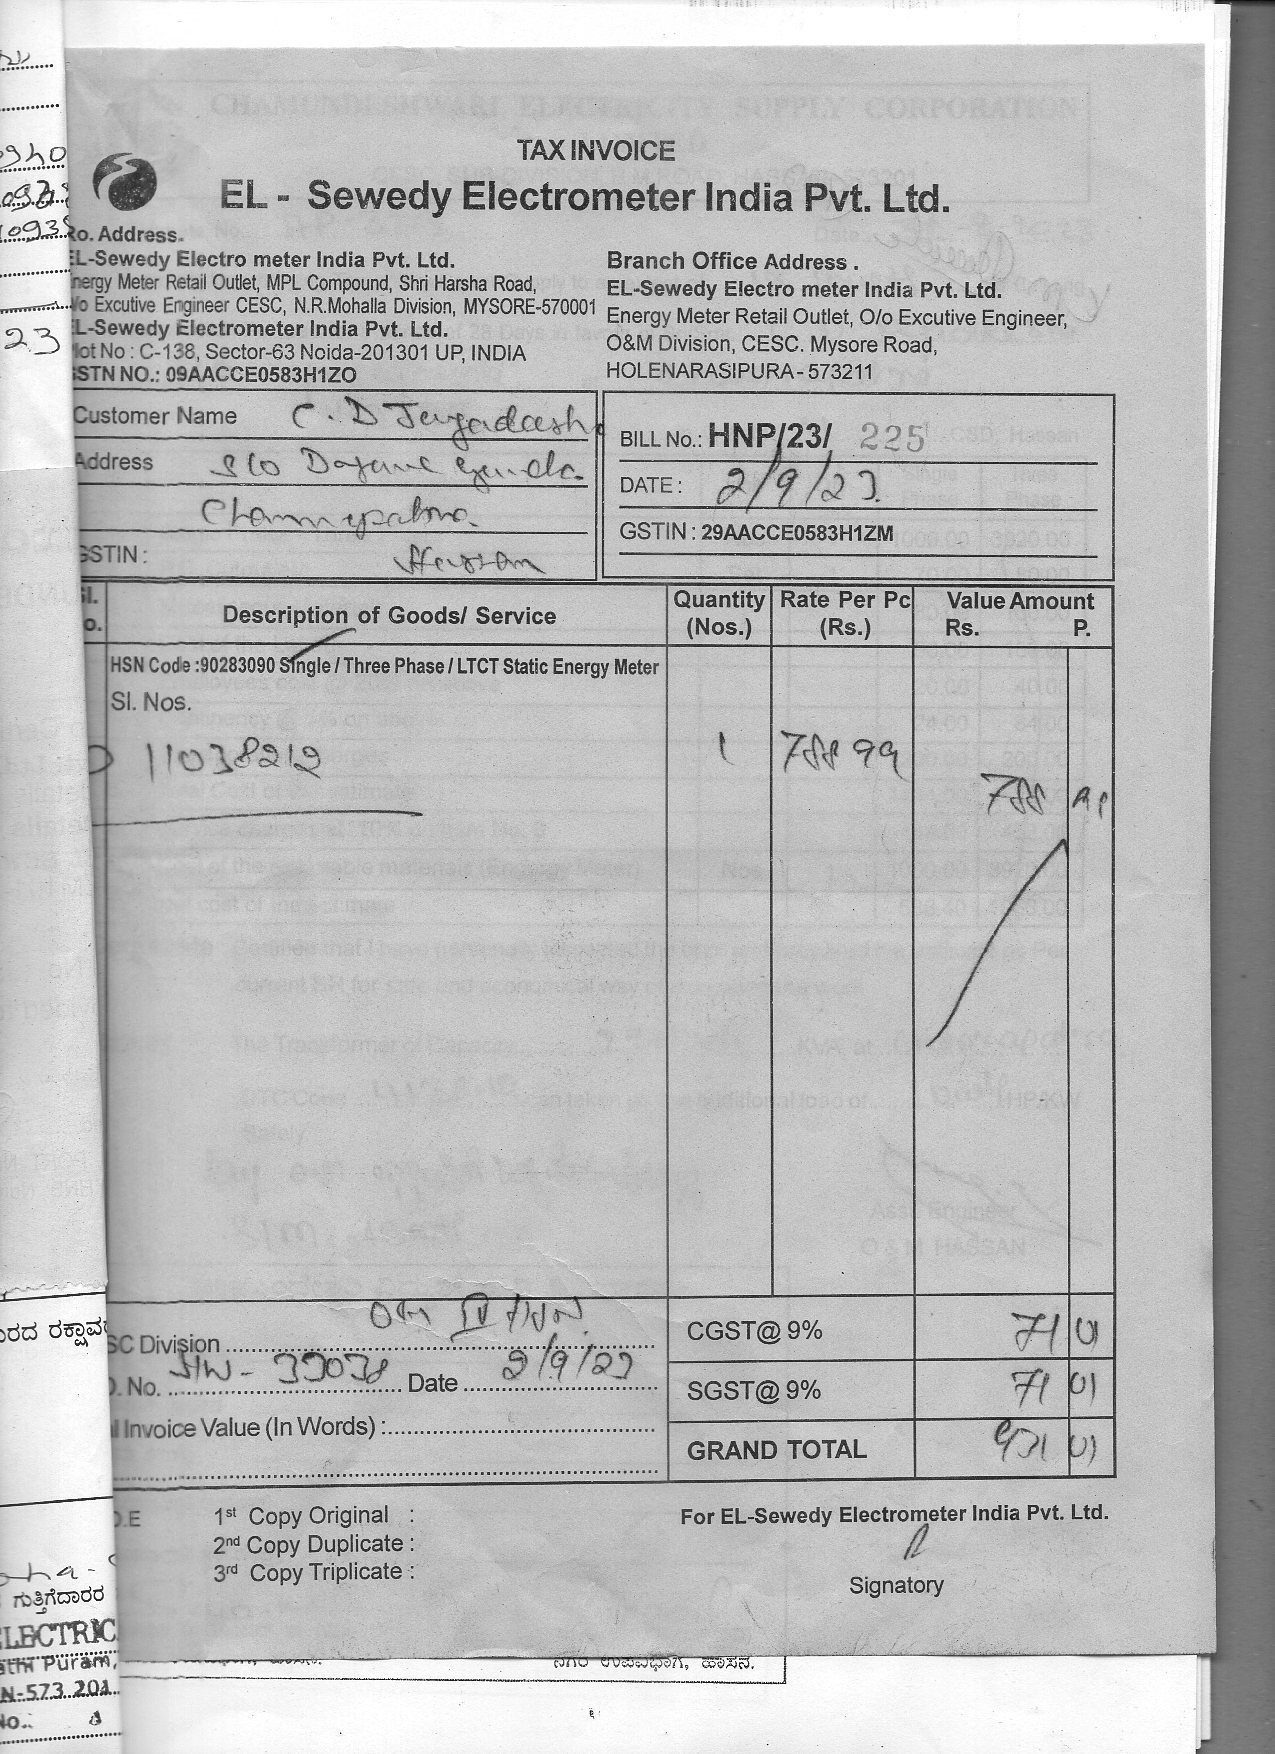 TAX INVOICE
EL - Sewedy Electrometer India Pvt. Ltd.
o. Address.
L-Sewedy Electro meter India Pvt. Ltd.
nergy Meter Retail Outlet, MPL Compound, Shri Harsha Road,
/o Excutive Engineer CESC, N.R.Mohalla Division, MYSORE-570001
L-Sewedy Electrometer India Pvt. Ltd.
lot No : C-138, Sector-63 Noida-201301 UP, INDIA
STN NO.: 09AACCE0583H1ZO
Branch Office Address .
EL-Sewedy Electro meter India Pvt. Ltd.
Energy Meter Retail Outlet, O/o Excutive Engineer,
O&M Division, CESC. Mysore Road,
HOLENARASIPURA - 573211
Customer Name C. D
Address S/o
GSTIN : Hassan
BILL No.: HNP/23/ 225
DATE : 2/9/23
GSTIN : 29AACCE0583H1ZM
Sl. o. Description of Goods/ Service Quantity (Nos.) Rate Per Pc (Rs.) Value Amount Rs. P.
HSN Code :90283090 Single / Three Phase / LTCT Static Energy Meter
Sl. Nos.
11038212 1 788 99 788
SC Division
CGST@ 9% 71 01
. No. Date 2/9/23
SGST@ 9% 71 01
l Invoice Value (In Words) :
GRAND TOTAL 931 01
O.E 1st Copy Original :
2nd Copy Duplicate :
3rd Copy Triplicate :
For EL-Sewedy Electrometer India Pvt. Ltd.
Signatory
23
ಗುತ್ತಿಗೆದಾರರ
LECTRIC
athi Puram,
N-573 201
No.:
ನಗರ ಉಪವಿಭಾಗ, ಹಾಸನ.